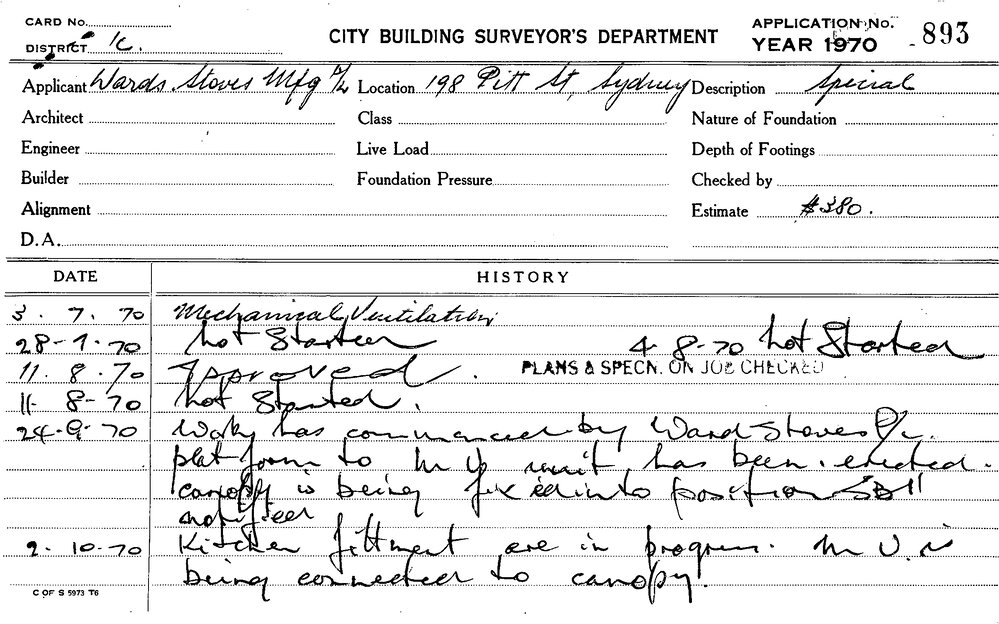 CARD No.
DISTRICT 1c.
CITY BUILDING SURVEYOR'S DEPARTMENT
APPLICATION No. 893
YEAR 1970
Applicant Wards Stoves Mfg P/L Location 198 Pitt St, Sydney Description Special
Architect Class Nature of Foundation
Engineer Live Load Depth of Footings
Builder Foundation Pressure Checked by
Alignment Estimate $380.
D.A.
DATE HISTORY
3 . 7. 70 Mechanical Ventilation
28-7-70 Not Started 4-8-70 Not Started
11. 8.70 Approved. PLANS & SPECN. ON JOB CHECKED
11- 8-70 Not Started.
24-9-70 has commenced by Ward Stoves P/L.
platform to M V unit has been erected.
canopy is being fixed into position
notified
2. 10-70 Kitchen fittment are in progress. M V. is
being connected to canopy.
C OF S 5973 T6